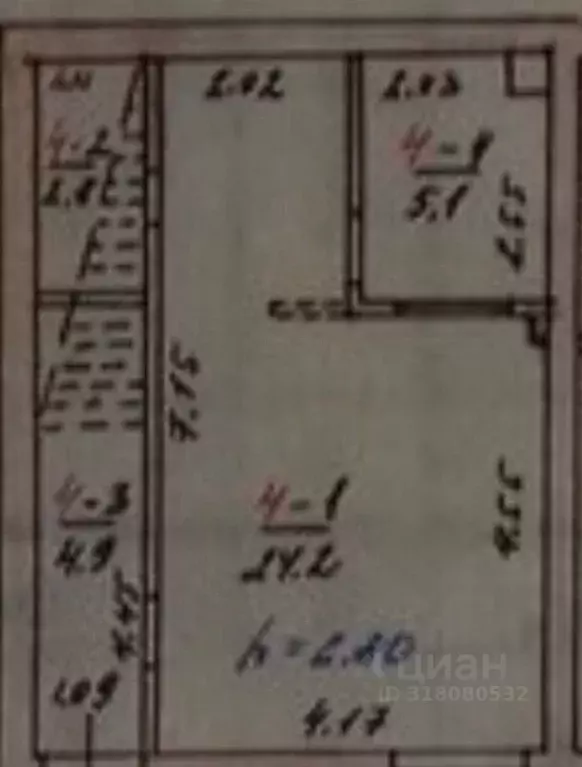 2.02
2.03
4-2
4-1
5,1
2.55
7.15
4-3
4.9
4-1
24.2
4.55
4.45
1.09
h=2.80
4.17
циан
ID 318080532